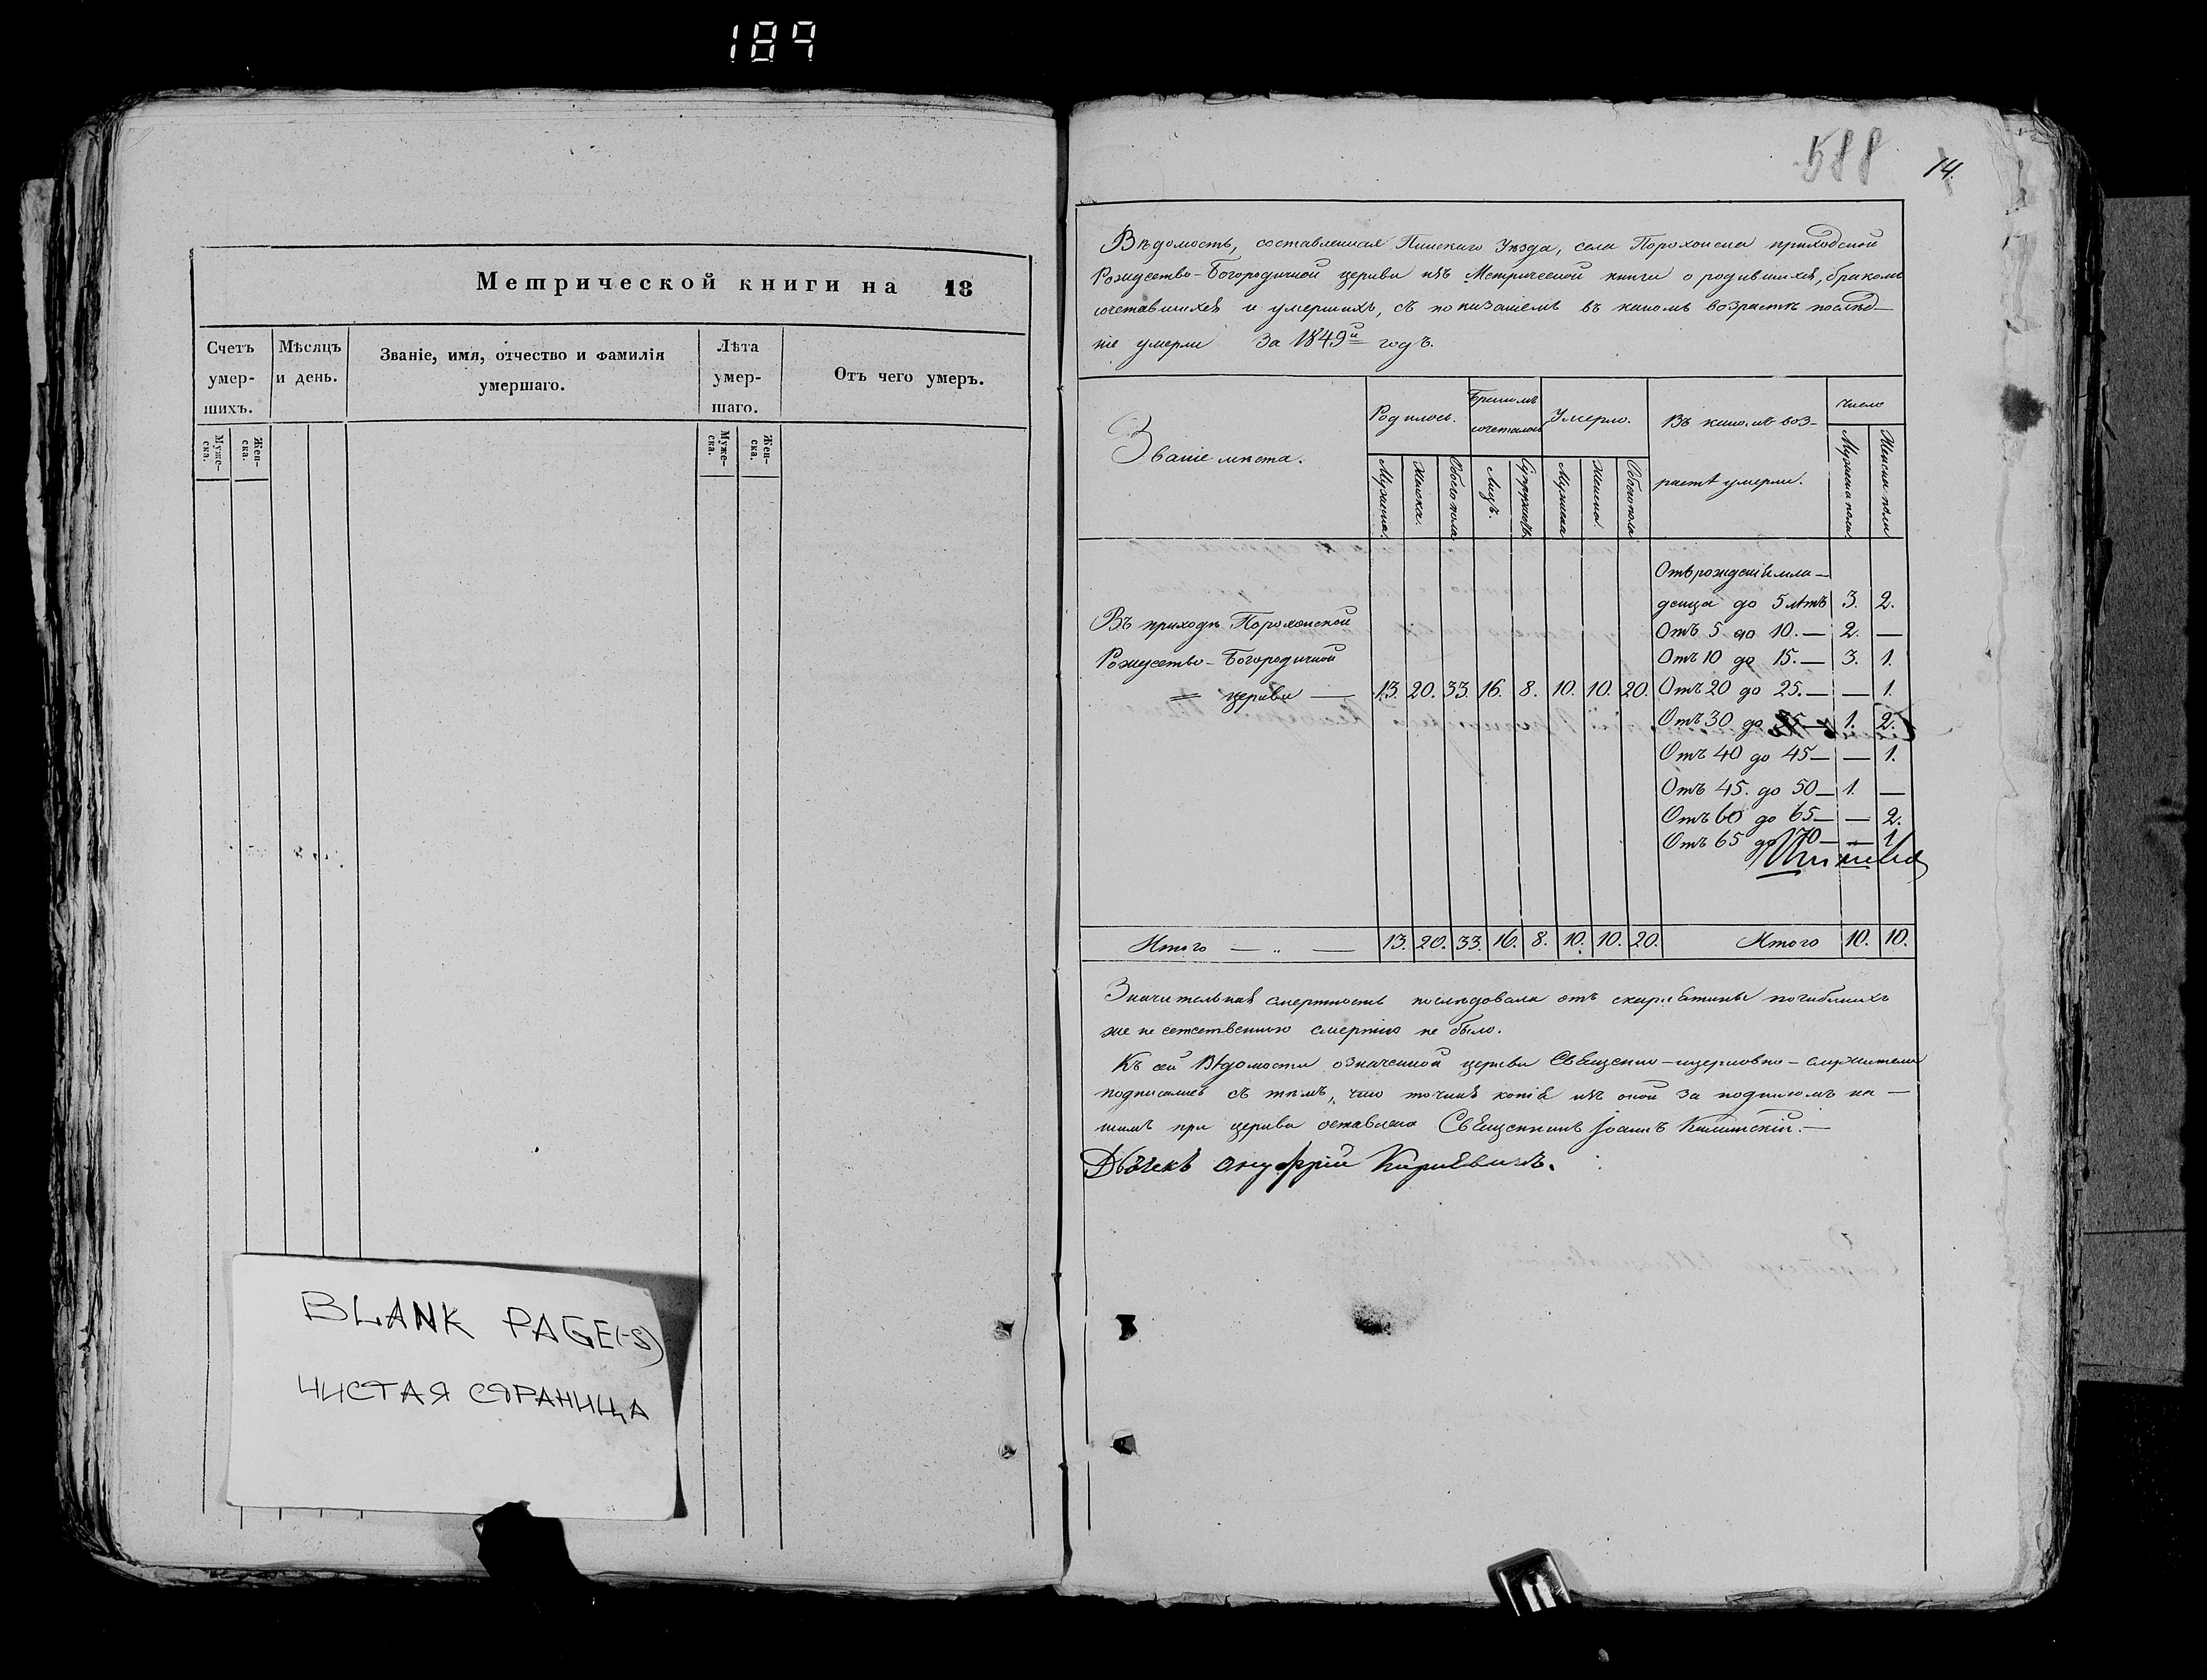 189
Метрической книги на 18
Счетъ умер- шихъ.
Мѣсяцъ и день.
Званіе, имя, отчество и фамилія умершаго.
Лѣта умер- шаго.
Отъ чего умеръ.
Муже- ска.
Жен- ска.
Муже- ска.
Жен- ска.
BLANK PAGE(-S)
ЧИСТАЯ СТРАНИЦА
588
14.
Вѣдомость, составленная Пинскаго Уѣзда, села Порохонска приходской
Рождество-Богородичной церкви изъ Метрической книги о родившихся, бракомъ
сочетавшихся и умершихъ, съ показаніемъ въ какомъ возрастѣ послѣд-
ніе умерли За 1849й годъ.
Званіе мѣста.
Родилось.
Бракомъ сочеталось
Умерло.
Въ какомъ воз- растѣ умерли.
Число
Мужеска
Женска.
Обоего пола
Лицъ.
Супружествъ
Мужеска
Женска
Обоего пола
Мужеска пола
Женска пола
Отъ рожденія мла-
денца до 5 лѣтъ 3. 2.
Отъ 5 до 10. — 2. —
Отъ 10 до 15. — 3. 1.
Въ приходѣ Порохонской
Рождество-Богородичной
церкви — 13. 20. 33. 16. 8. 10. 10. 20. Отъ 20 до 25. — — 1.
Отъ 30 до 1. 2.
Отъ 40 до 45 — — 1.
Отъ 45. до 50 — 1. —
Отъ 60 до 65 — — 2.
Отъ 65 до 70 — — 1
Итого — „ — 13. 20. 33. 16. 8. 10. 10. 20. Итого 10. 10.
Значительная смертность послѣдовала отъ скарлатины погибшихъ
же не естественною смертію не было.
Къ сей Вѣдомости означенной церкви Священно-церковно-служители
подписались съ тѣмъ, что точная копія изъ оной за подписомъ на-
шимъ при церкви оставлена Священникъ Іоаннъ
Дьячекъ Онуфрій